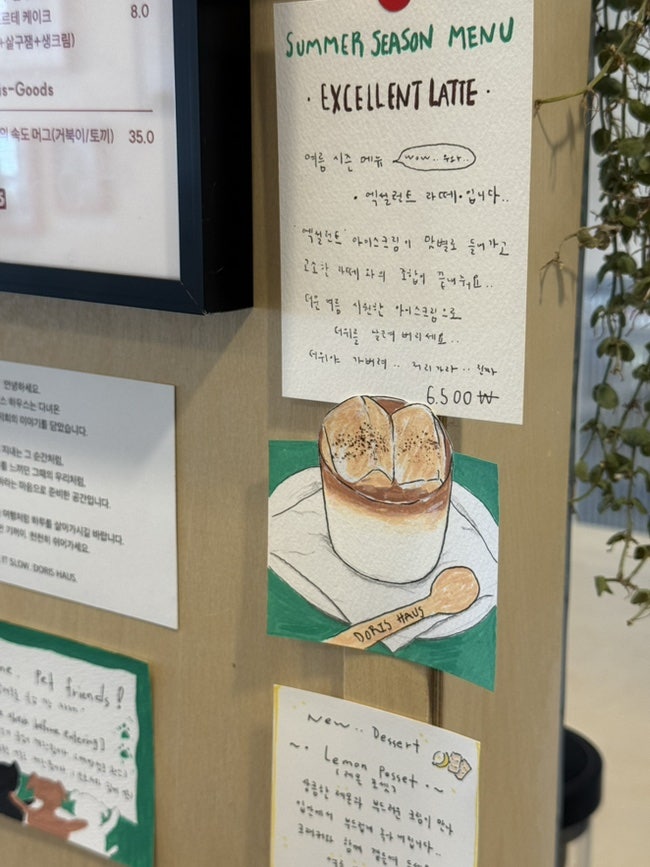 르테 케이크 8.0
+살구잼+생크림)
s-Goods
의 속도 머그(거북이/토끼) 35.0
SUMMER SEASON MENU
· EXCELLENT LATTE ·
여름 시즌 메뉴 wow..
· 엑설런트 라떼 · 입니다..
'엑설런트' 아이스크림이 맛별로 들어가고
고소한 라떼 와의 조합이 끝내줘요..
더운 여름 시원한 아이스크림으로
더위를 날려 버리세요..
더위야 가버려..
6.500 ₩
DORIS HAUS
안녕하세요.
스 하우스는 다녀온
저희의 이야기를 담았습니다.
지내는 그 순간처럼,
를 느끼던 그때의 우리처럼,
바라는 마음으로 준비한 공간입니다.
여행처럼 하루를 살아가시길 바랍니다.
천천히 쉬어가세요.
IT SLOW. DORIS HAUS.
me. Pet friends!
before entering]
New.. Dessert
~· Lemon Posset ·~
(레몬 포셋)
상큼한 레몬과 부드러운 크림이 만나
입안에서 부드럽게 녹아 내립니다..
크래커와 함께 곁들여